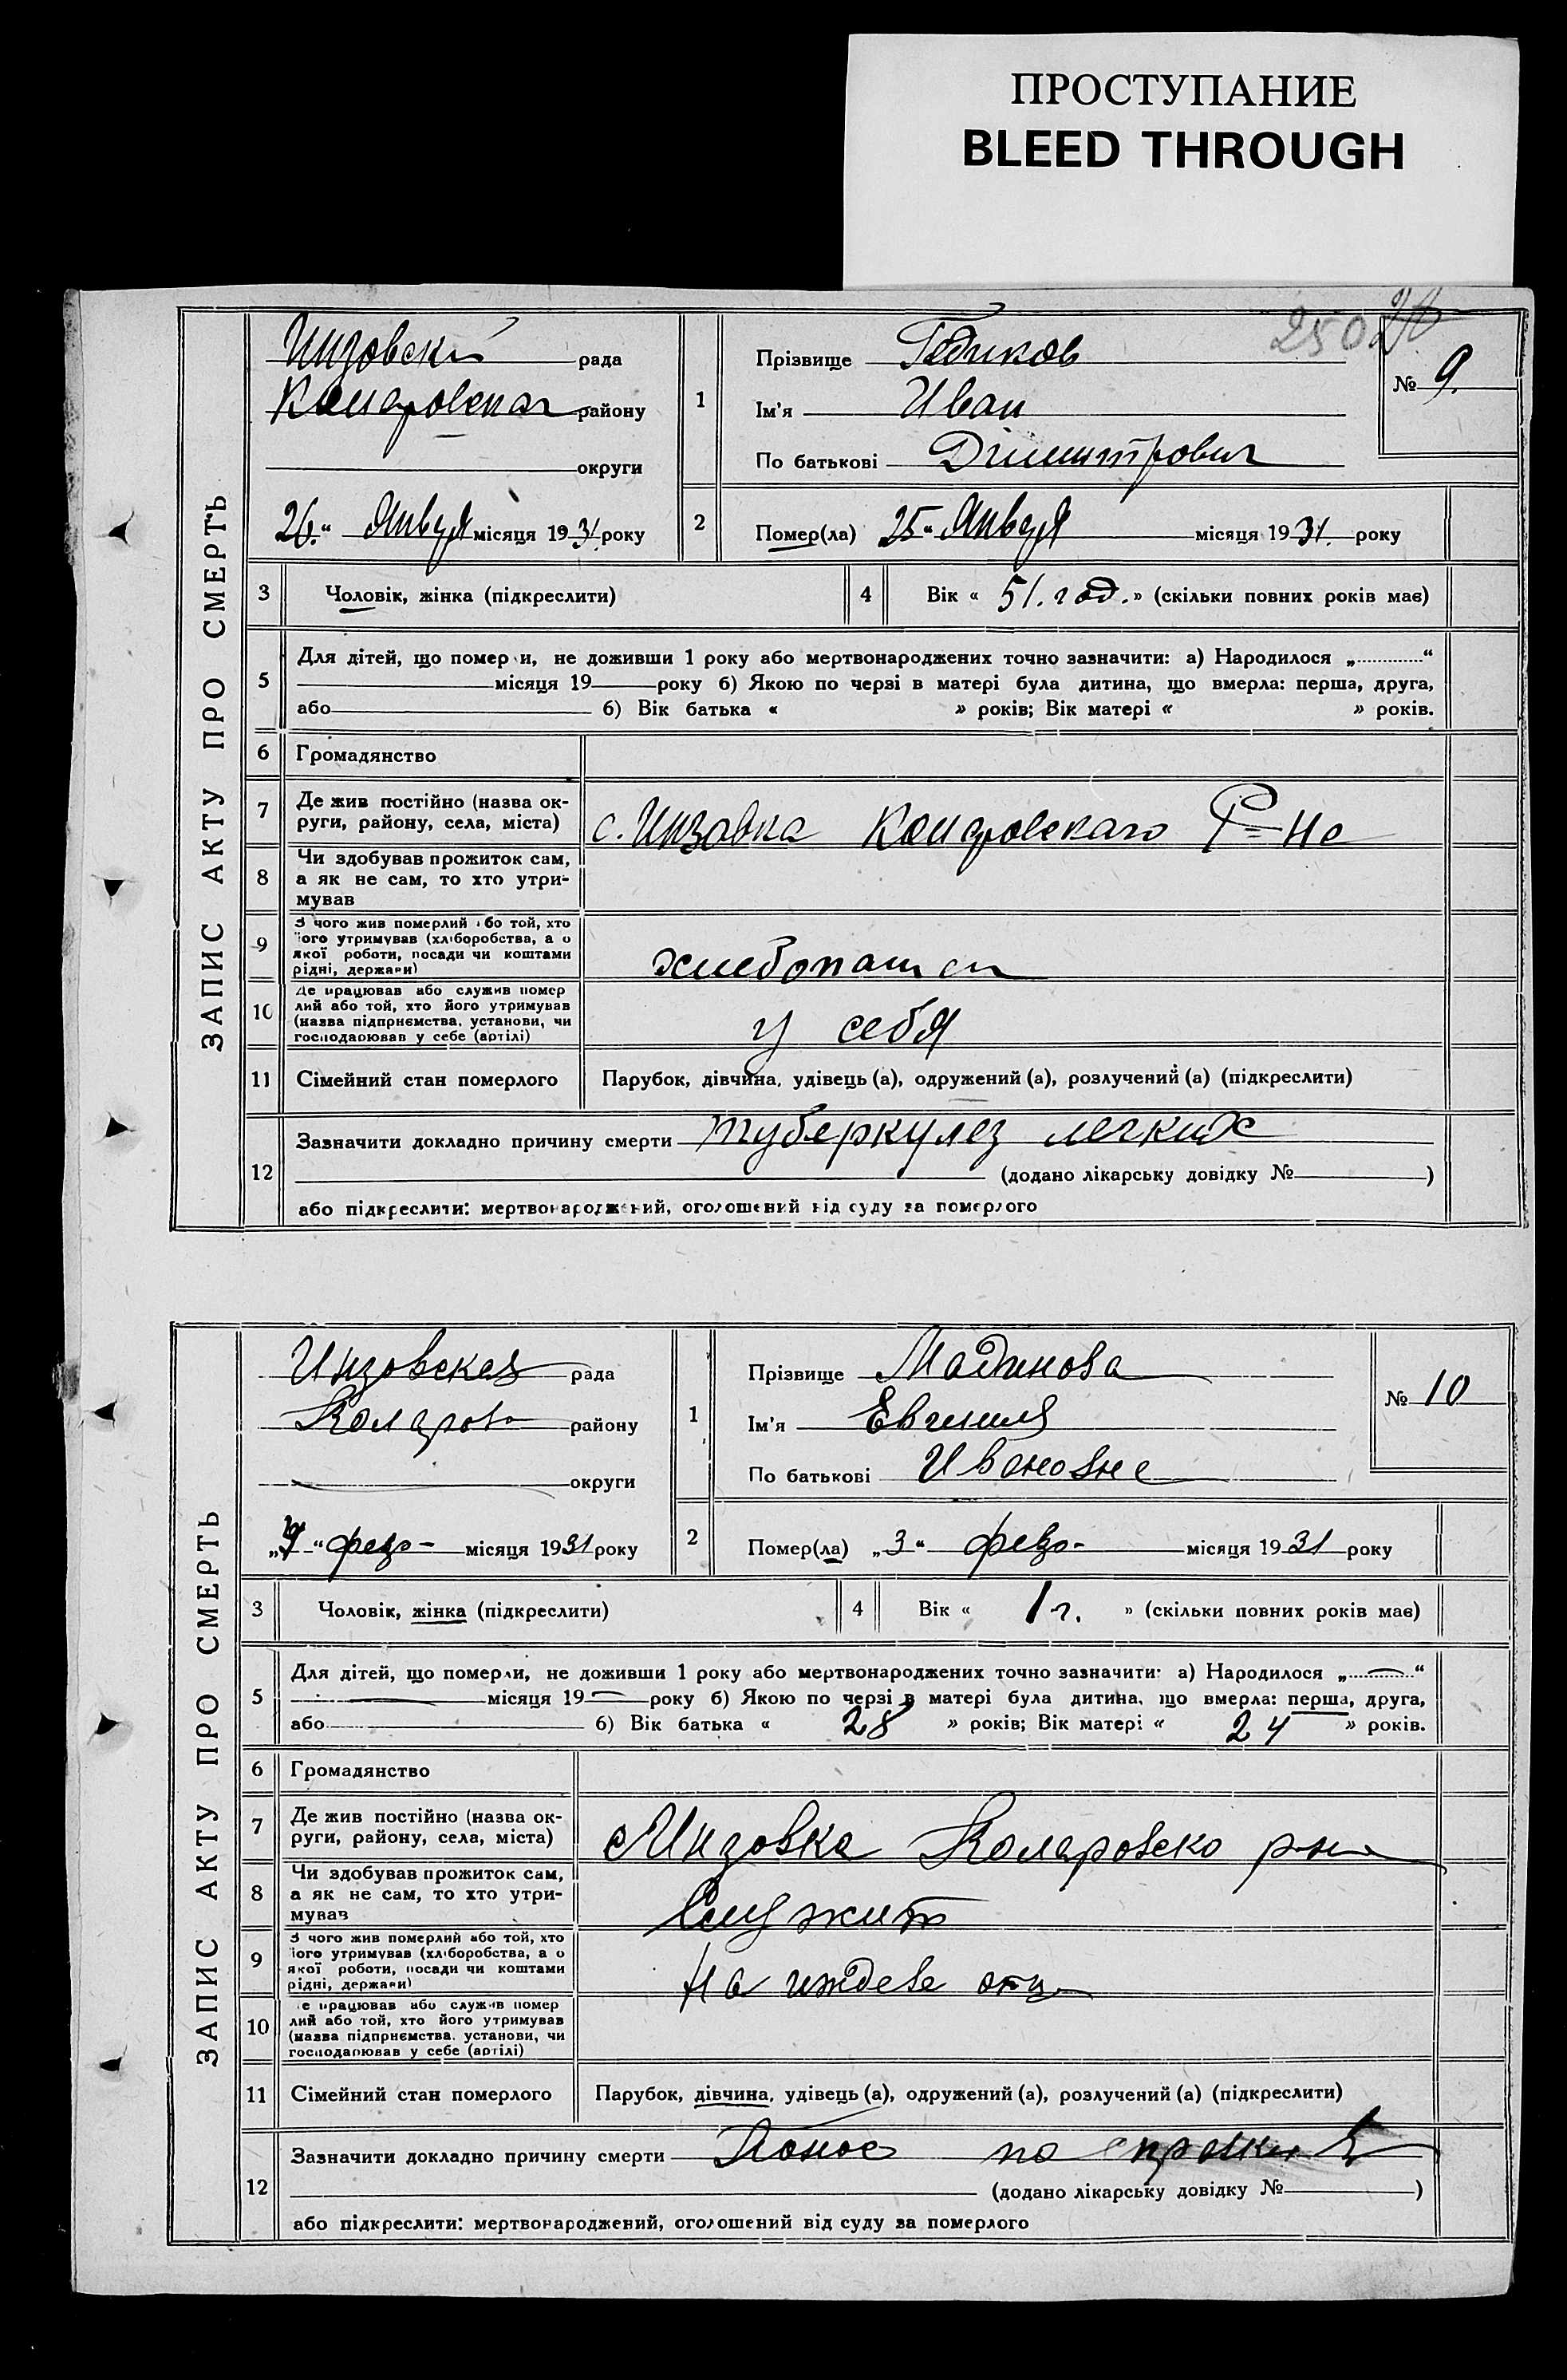 ПРОСТУПАНИЕ
BLEED THROUGH
250
ЗАПИС АКТУ ПРО СМЕРТЬ
Инзовский рада
района району
округи
26 " Января місяця 1931 року
1
Прізвище
Ім'я Иван
По батькові Димитрович
№ 9.
2
Помер(ла) 25 " Января місяця 1931. року
3 Чоловік, жінка (підкреслити)
4 Вік « 51. год. » (скільки повних років має)
5
Для дітей, що померли, не доживши 1 року або мертвонароджених точно зазначити: а) Народилося „ “
місяця 19 року б) Якою по черзі в матері була дитина, що вмерла: перша, друга,
або б) Вік батька « » років; Вік матері « » років.
6 Громадянство
7
Де жив постійно (назва ок-
руги, району, села, міста)
с. Инзовка Коларовскаго Р-на
8
Чи здобував прожиток сам,
а як не сам, то хто утри-
мував
9
З чого жив померлий або той, хто
його утримував (хліборобства, а о
якої роботи, посади чи коштами
рідні, держави)
10
Де працював або служив помер
лий або той, хто його утримував
(назва підприємства, установи, чи
господарював у себе (артілі)
у себя
11 Сімейний стан померлого
Парубок, дівчина, удівець (а), одружений (а), розлучений (а) (підкреслити)
12
Зазначити докладно причину смерти туберкулез легких
(додано лікарську довідку № )
або підкреслити: мертвонароджений, оголошений від суду за померлого
ЗАПИС АКТУ ПРО СМЕРТЬ
Инзовская рада
Коларов району
округи
„4 “ февр- місяця 1931 року
1
Прізвище Мадинова
Ім'я Евгения
По батькові Ивановна
№ 10
2
Помер(ла) „3 “ февр- місяця 1931 року
3 Чоловік, жінка (підкреслити)
4 Вік « 1 г. » (скільки повних років має)
5
Для дітей, що померли, не доживши 1 року або мертвонароджених точно зазначити: а) Народилося „ “
місяця 19 року б) Якою по черзі в матері була дитина, що вмерла: перша, друга,
або б) Вік батька « 28 » років; Вік матері « 24 » років.
6 Громадянство
7
Де жив постійно (назва ок-
руги, району, села, міста)
с Инзовка Коларовско р-на
8
Чи здобував прожиток сам,
а як не сам, то хто утри-
мував
Служит
9
З чого жив померлий або той, хто
його утримував (хліборобства, а о
якої роботи, посади чи коштами
рідні, держави)
На иждеве отц
10
Де працював або служив помер
лий або той, хто його утримував
(назва підприємства, установи, чи
господарював у себе (артілі)
11 Сімейний стан померлого
Парубок, дівчина, удівець (а), одружений (а), розлучений (а) (підкреслити)
12
Зазначити докладно причину смерти Понос по
(додано лікарську довідку № )
або підкреслити: мертвонароджений, оголошений від суду за померлого